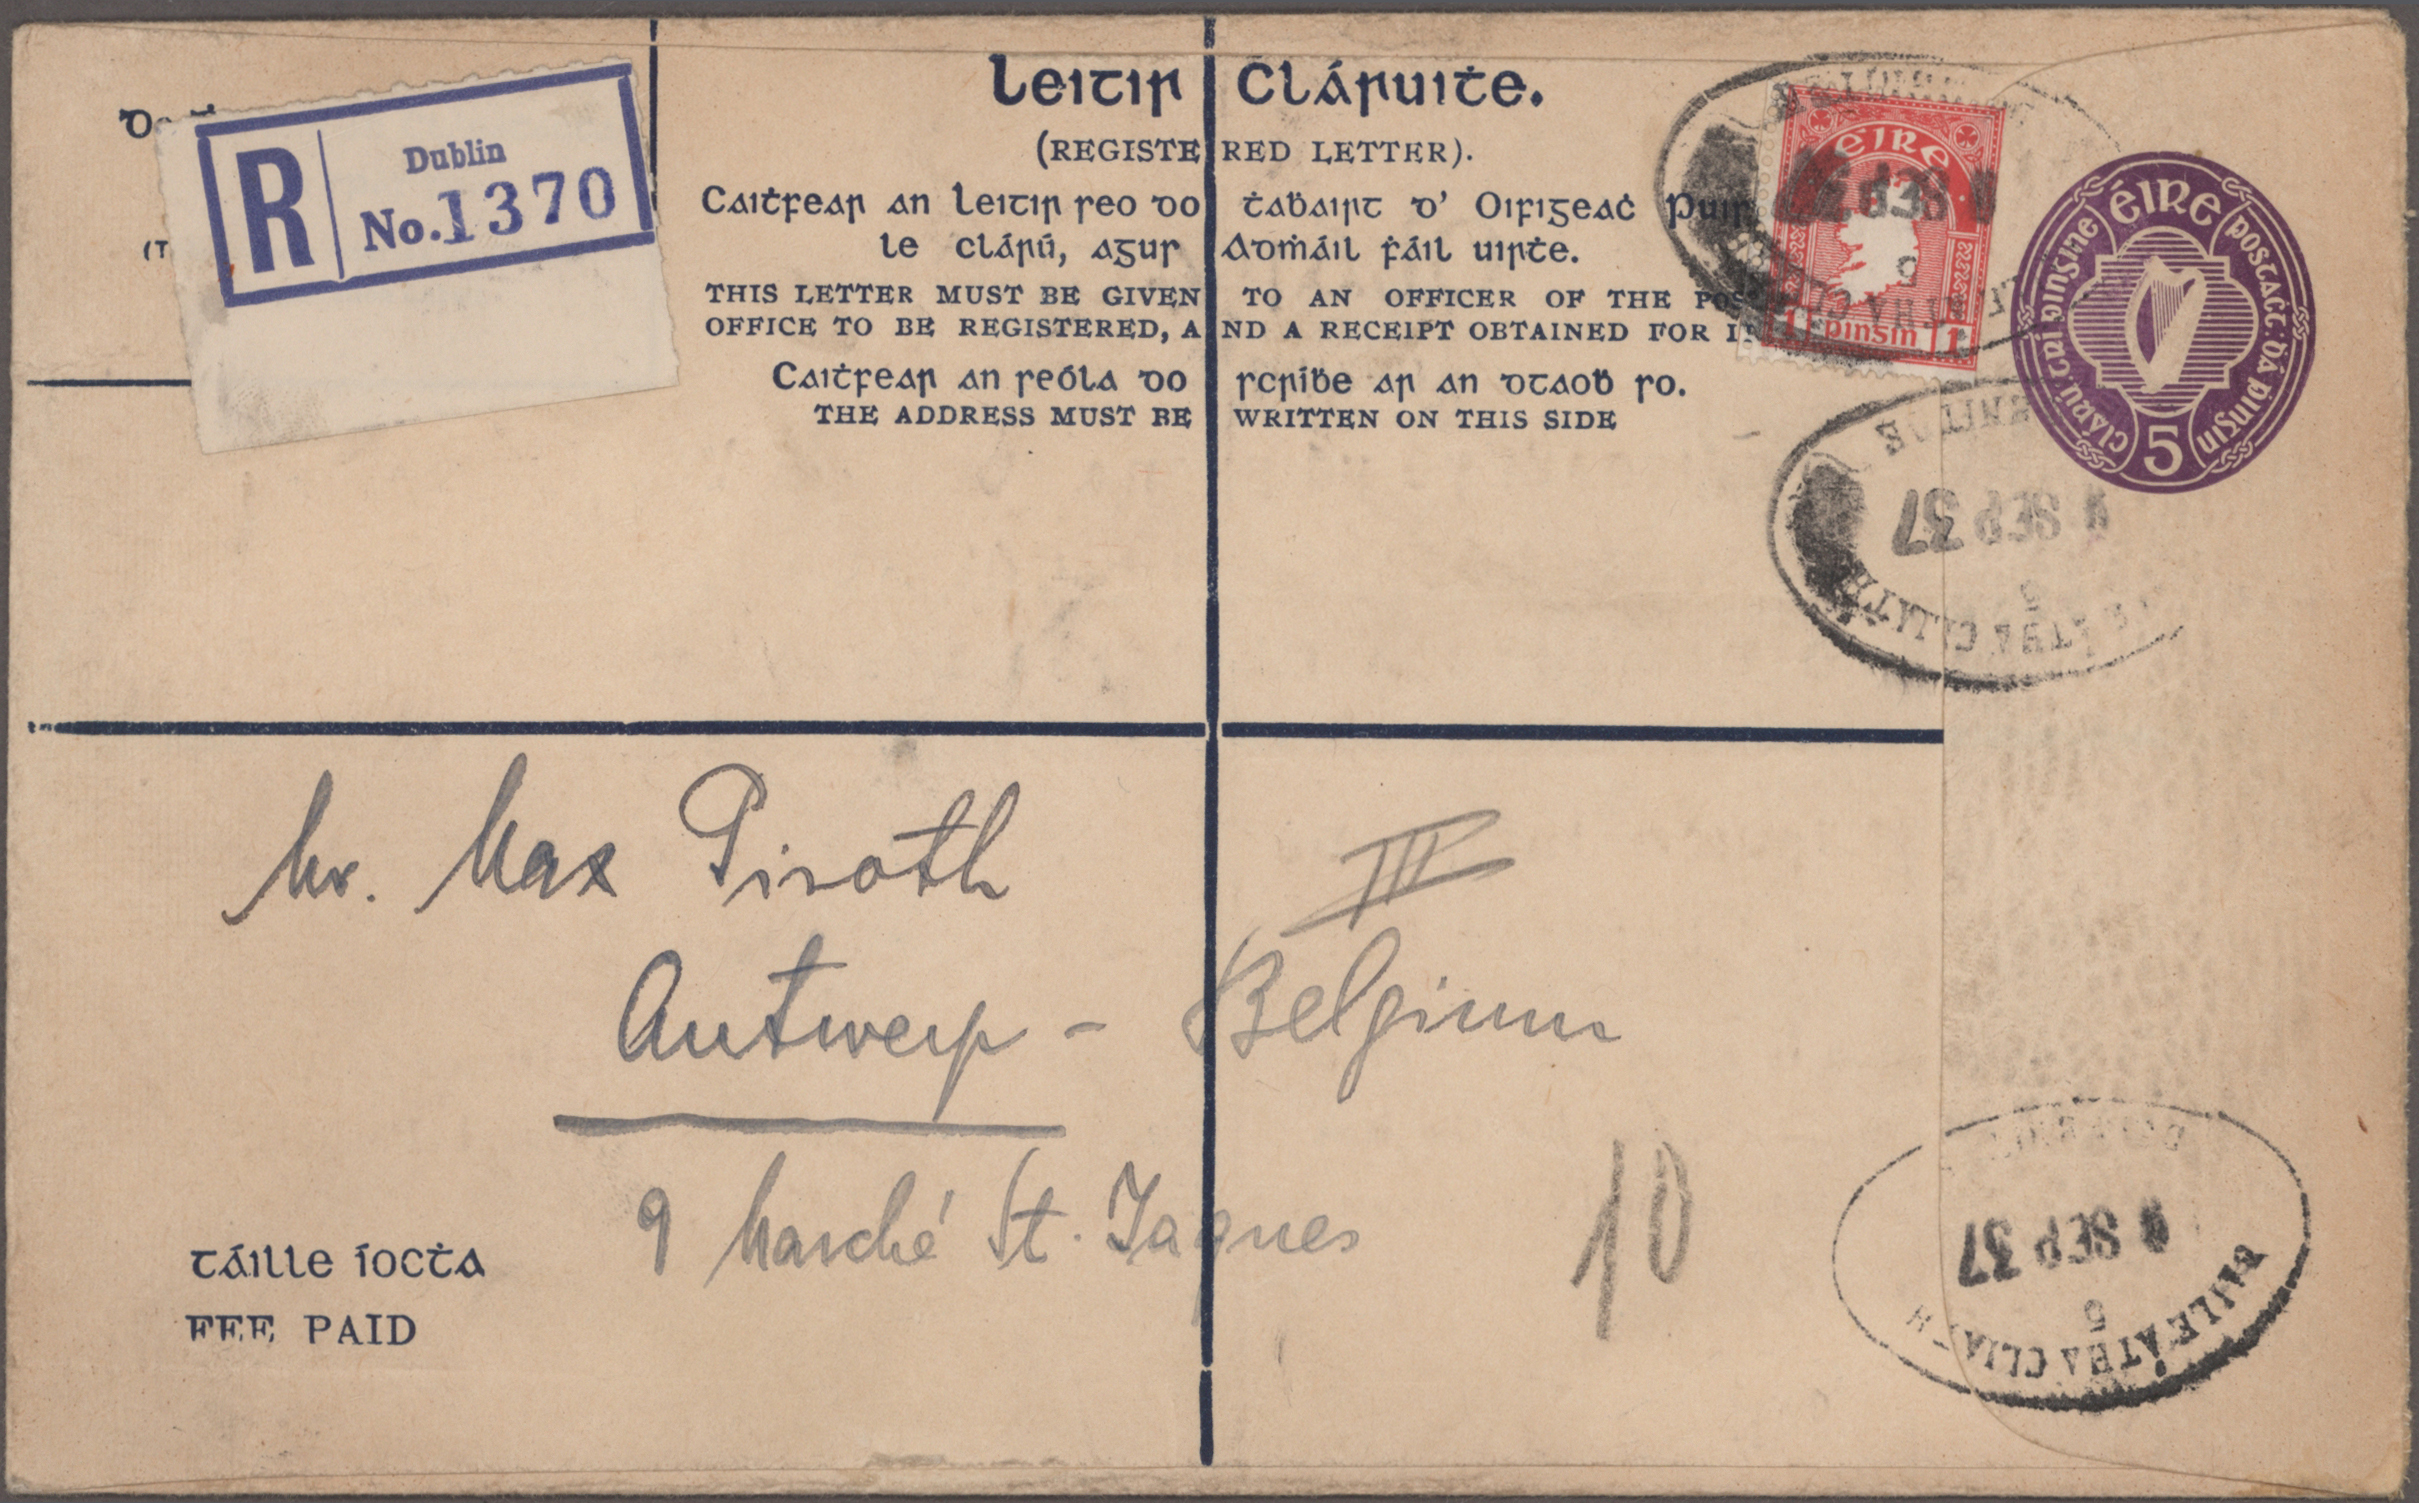 Leitir Cláruiṫe.
(REGISTERED LETTER).
Caiṫfear an leitir seo do ṫaḃairt d' Oifigeaċ Puis
le clárú, agus Admáil ḟáil uirṫe.
THIS LETTER MUST BE GIVEN TO AN OFFICER OF THE POS
OFFICE TO BE REGISTERED, AND A RECEIPT OBTAINED FOR IT
Caiṫfear an seóla do scríḃe ar an dtaoḃ so.
THE ADDRESS MUST BE WRITTEN ON THIS SIDE
R
Dublin
No. 1370
(T
ÉIRE
1 pinsin 1
ÉIRE
postaċt: dá ṗingin
clárú: trí pingine
5
SEP 37
SEP 37
ÁTHA CLIATH
Mr. Max Piroth
III
Antwerp - Belgium
9 Marché St. Jaques
10
SEP 37
5
BAILE ÁTHA CLIATH
táille íocṫa
FEE PAID